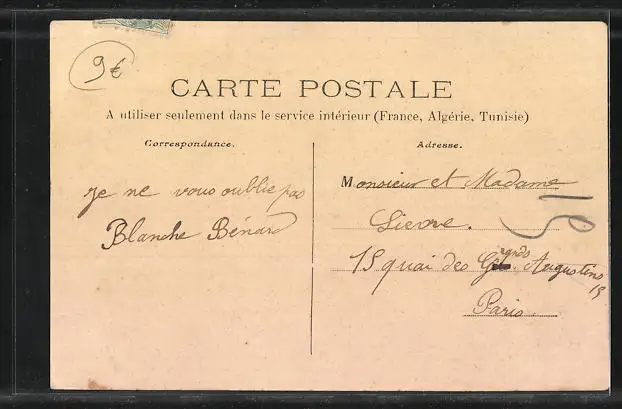 9€
CARTE POSTALE
A utiliser seulement dans le service intérieur (France, Algérie, Tunisie)
Correspondance.
Adresse.
je ne vous oublie pas
Blanche Bénard
Monsieur et Madame
Lievre.
15 quai des Grands Augustins
15
Paris.